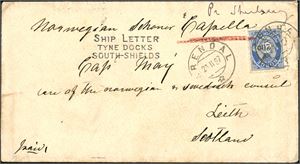 Norwegian Schoner "Capella"
SHIP LETTER
TYNE DOCKS
SOUTH-SHIELDS
Capt May
care of the norwegian & Swedish consul
Leith
Scotland